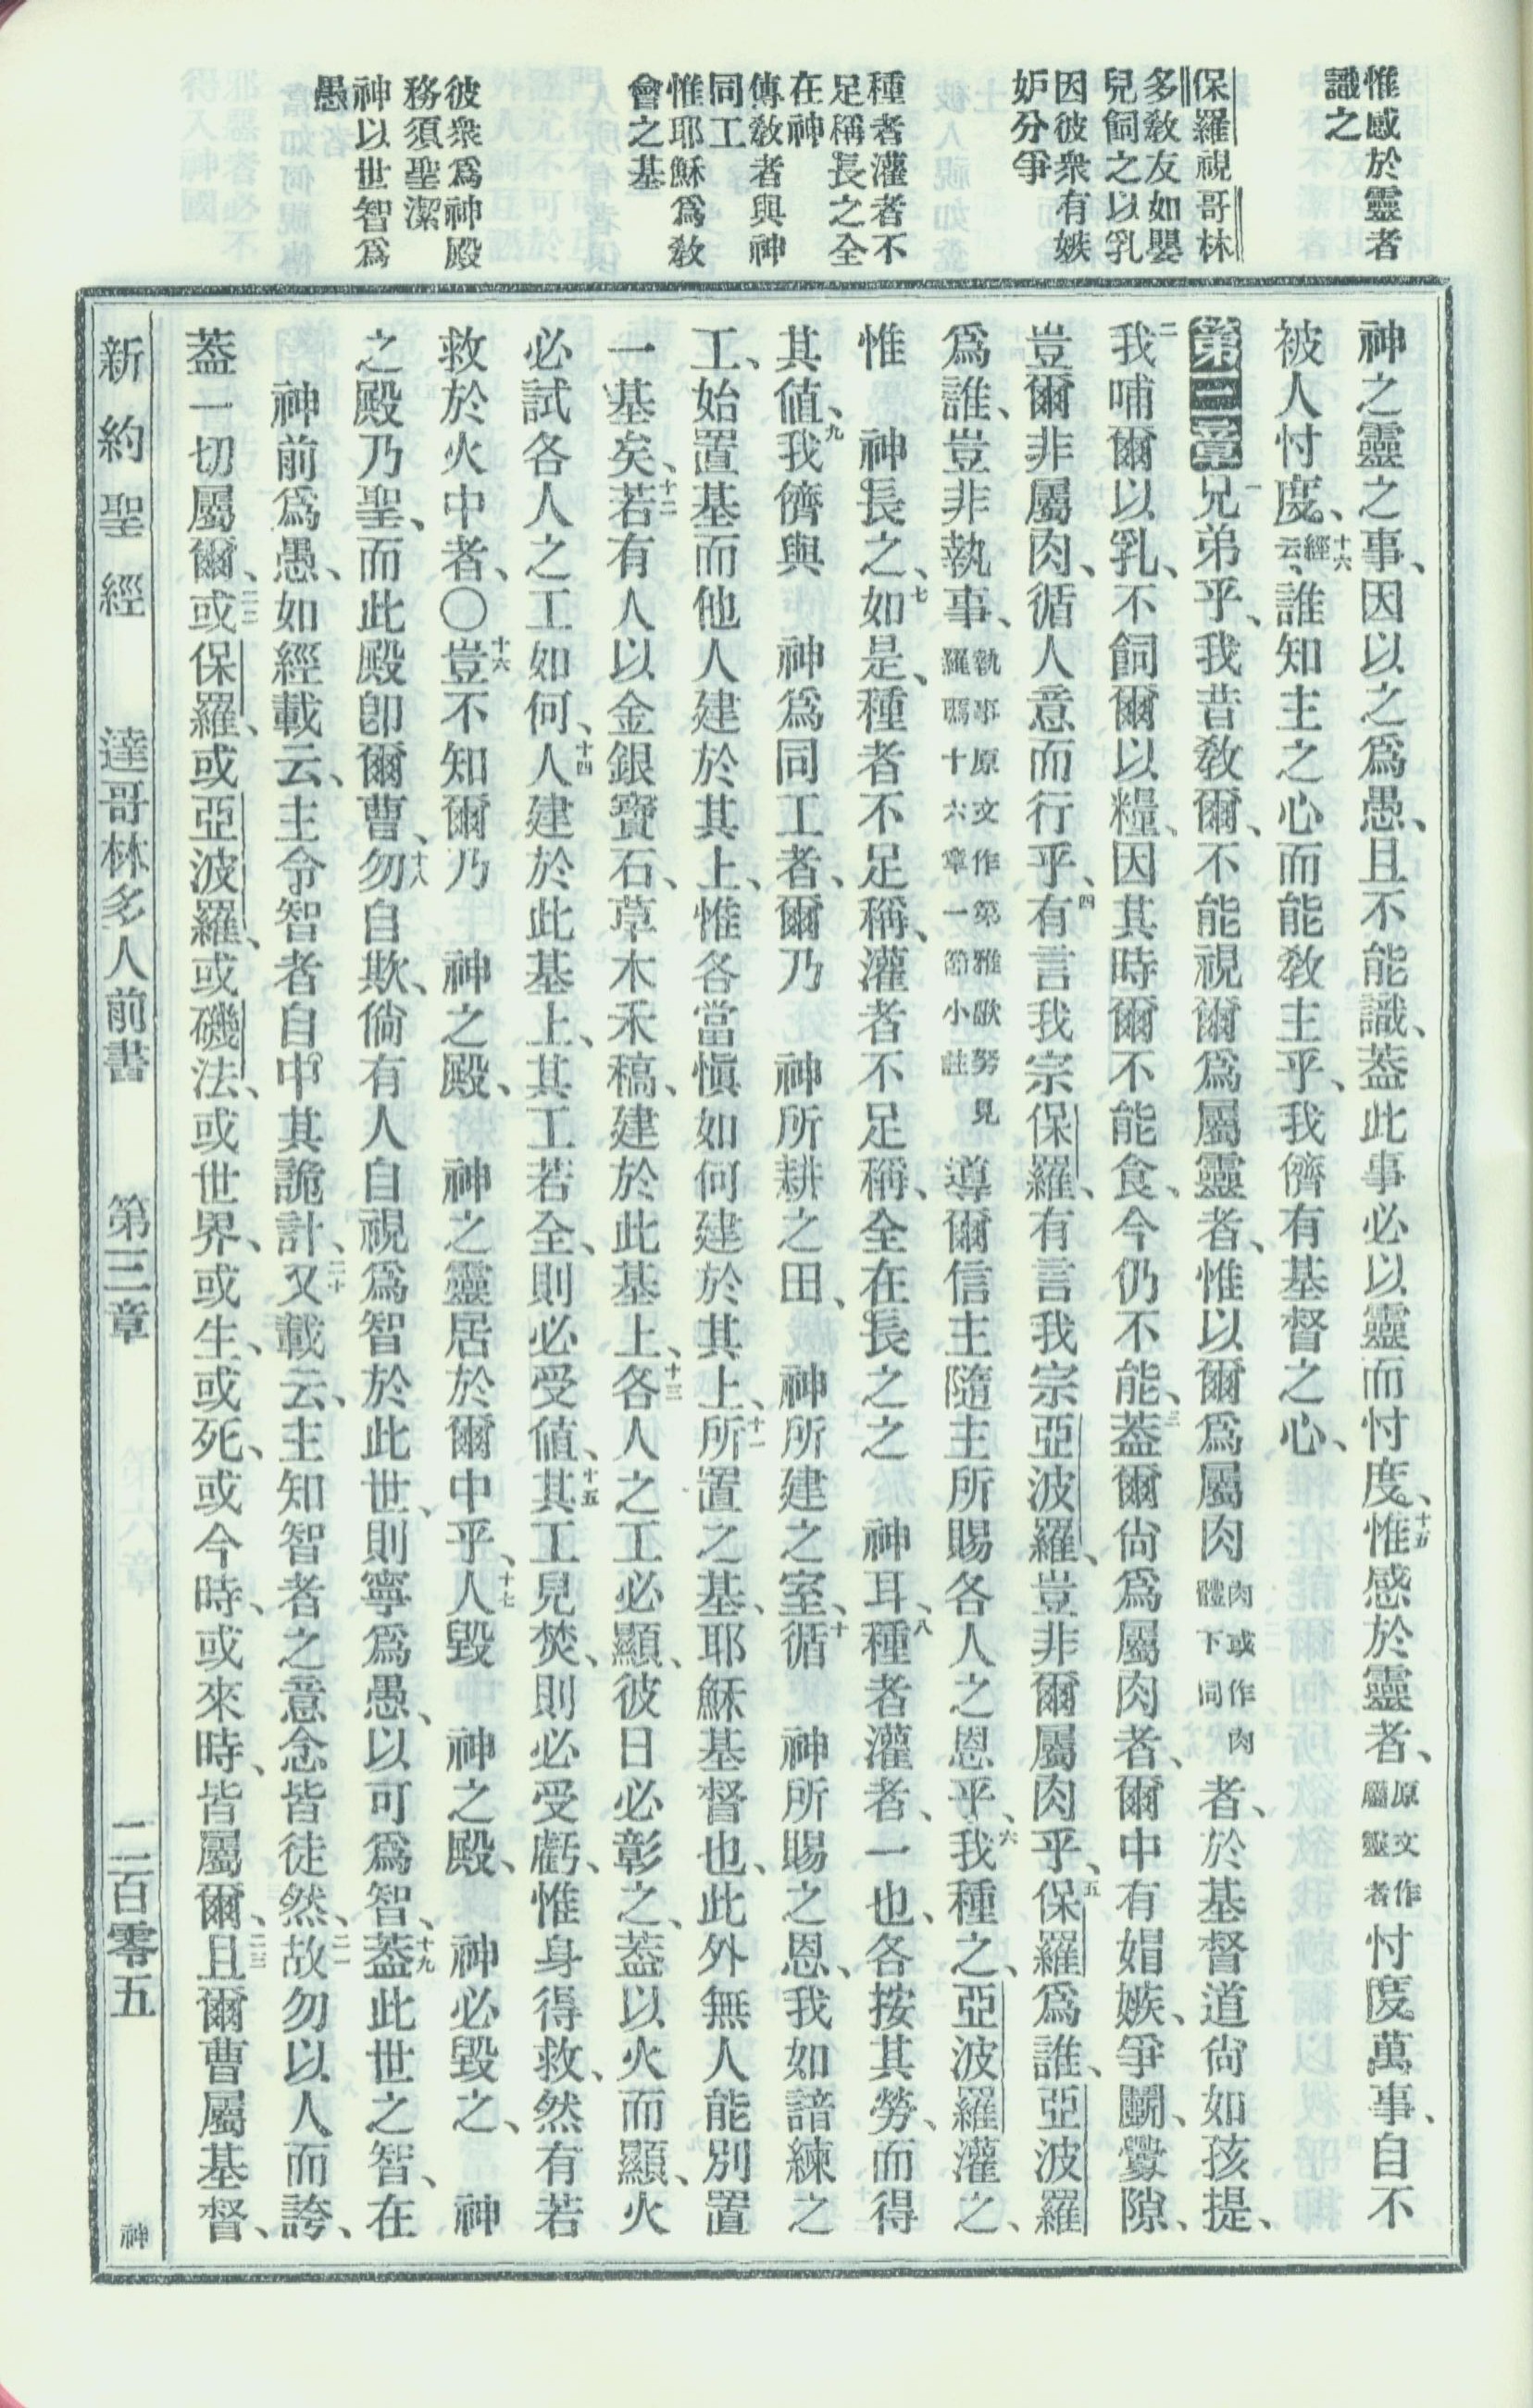 惟感於靈者
識之
保羅視哥林
多敎友如嬰
兒飼之以乳
因彼衆有嫉
妒分爭
種者灌者不
足稱長之全
在神
傳敎者與神
同工
惟耶穌爲敎
會之基
彼衆爲神殿
務須聖潔
神以世智爲
愚
神之靈之事、因以之爲愚、且不能識、葢此事必以靈而忖度、十五惟感於靈者、原文作屬靈者忖度萬事、自不
被人忖度、十六經云、誰知主之心而能敎主乎、我儕有基督之心、
第三章一兄弟乎、我昔敎爾、不能視爾爲屬靈者、惟以爾爲屬肉肉或作肉體下同者、於基督道尙如孩提、
二我哺爾以乳、不飼爾以糧、因其時爾不能食、今仍不能、三葢爾尙爲屬肉者、爾中有娼嫉、爭鬬、釁隙、
豈爾非屬肉、循人意而行乎、四有言我宗保羅、有言我宗亞波羅、豈非爾屬肉乎、五保羅爲誰、亞波羅
爲誰、豈非執事、執事原文作第雅歐努見羅瑪十六章一節小註導爾信主隨主所賜各人之恩乎、六我種之、亞波羅灌之、
惟 神長之、七如是、種者不足稱、灌者不足稱、全在長之之 神耳、八種者灌者、一也、各按其勞、而得
其値、九我儕與 神爲同工者、爾乃 神所耕之田、 神所建之室、十循 神所賜之恩、我如諳練之
工、始置基而他人建於其上、惟各當愼如何建於其上、十一所置之基、耶穌基督也、此外無人能別置
一基矣、十二若有人以金銀寶石、草木禾稿、建於此基上、十三各人之工必顯、彼日必彰之、葢以火而顯、火
必試各人之工如何、十四人建於此基上、其工若全、則必受値、十五其工見焚、則必受虧、惟身得救、然有若
救於火中者、〇十六豈不知爾乃 神之殿、 神之靈居於爾中乎、十七人毀 神之殿、 神必毀之、 神
之殿乃聖、而此殿卽爾曹、十八勿自欺、倘有人自視爲智於此世、則寧爲愚、以可爲智、十九葢此世之智、在
神前爲愚、如經載云、主令智者自中其詭計、二十又載云、主知智者之意念皆徒然、二一故勿以人而誇、
葢一切屬爾、二二或保羅、或亞波羅、或磯法、或世界、或生、或死、或今時、或來時、皆屬爾、二三且爾曹屬基督、
新約聖經 達哥林多人前書 第三章 二百零五 神